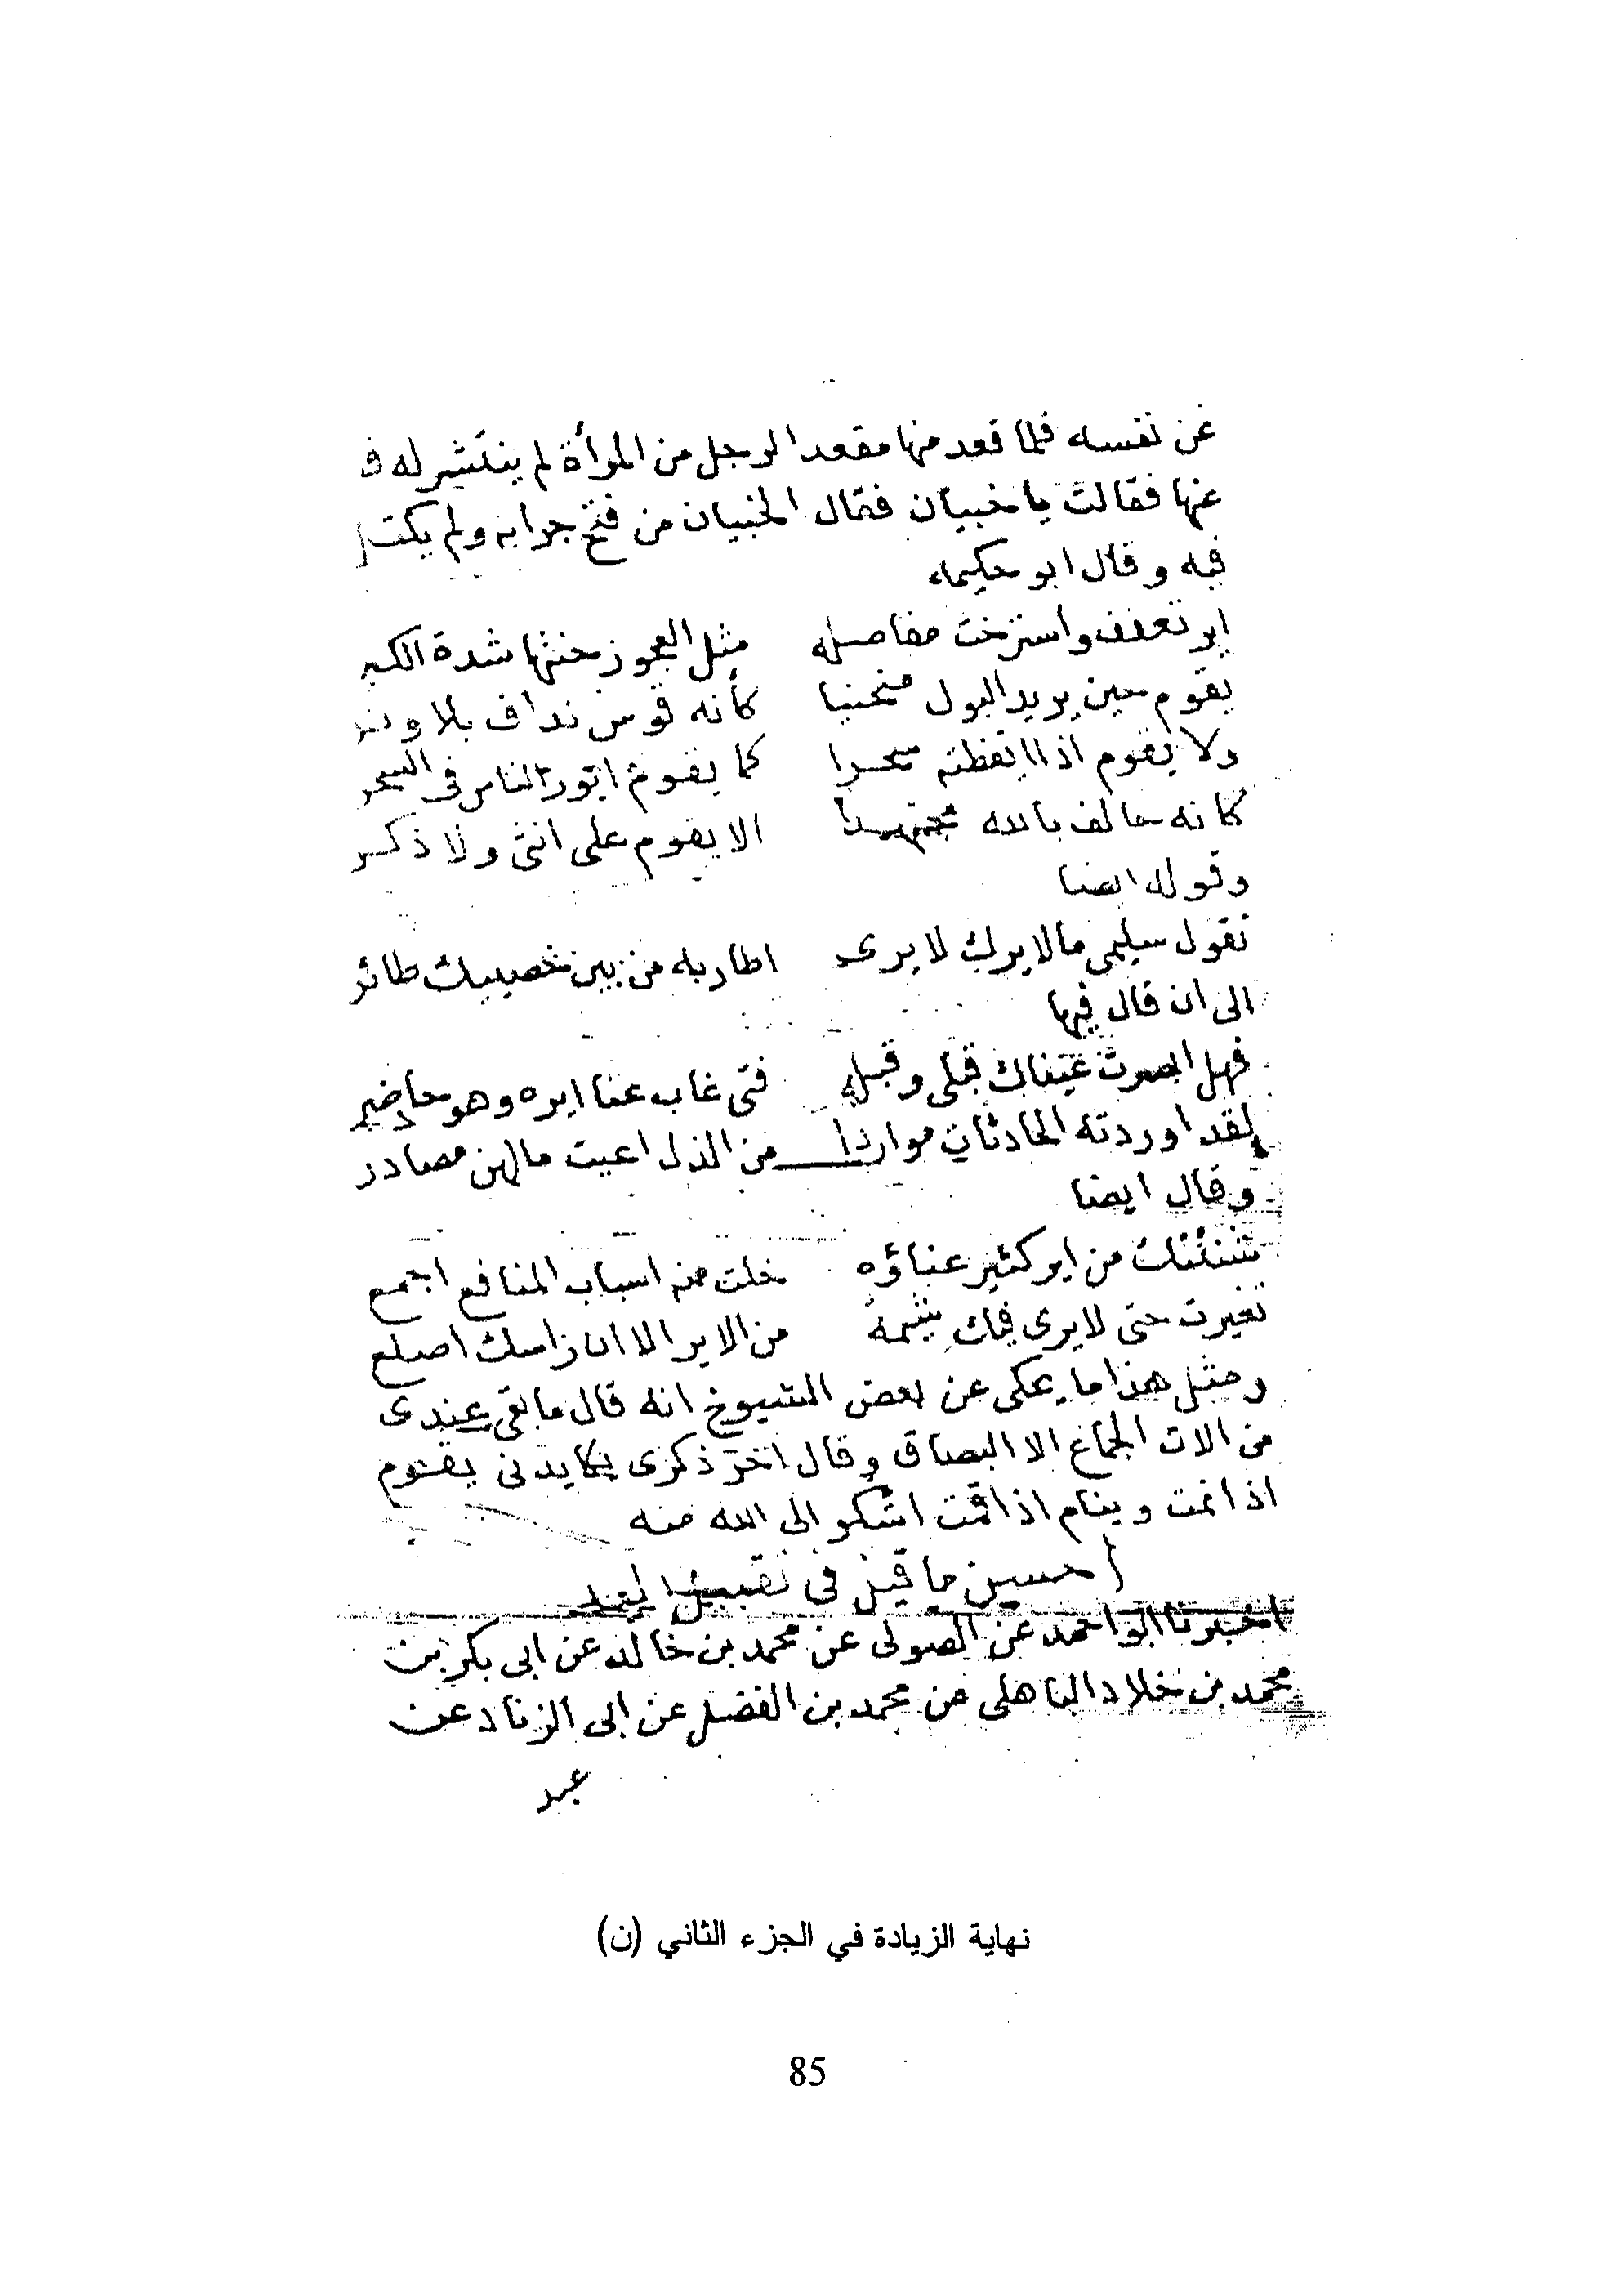 عن نفسه فلما قعد منها مقعد الرجل من المرأة لم ينتشر له
عنها فقالت يا خيبان فقال الخيبان من فتح جرابه ولم يكتل
فيه وقال ابو حكيمه
اير تعفف واسترخت مفاصله مثل العجوز حناها شدة الكبر
يقوم حين يريد البول منحنيا كأنه قوس نداف بلا وتر
ولا يقوم اذا ايقظته سحرا كما يقوم ايور الناس فى السحر
كانه حالف بالله مجتهدا الا يقوم على انثى ولا ذكر
وقوله ايضا
تقول سليمى ما لايرك لا يرى اطار به من بين خصييك طائر
الى ان قال فيها
فهل ابصرت عيناك قبلى وقبله فتى غاب عنا ايره وهو حاضر
لقد اوردته الحادثات مواردا من الذل اعيت ما لهن مصادر
وقال ايضا
من اير كثير عناؤه خلت منه اسباب المنافع اجمع
تغيرت حتى لا يرى فيك شيمة من الاير الا ان راسك اصلع
ومثل هذا ما يحكى عن بعض الشيوخ انه قال ما بقى عندى
من الات الجماع الا البصاق وقال اخر ذكرى يكايدنى يقوم
اذا نمت وينام اذا قمت اشكو الى الله منه
احسن ما قيل فى تقبيل اليد
اخبرنا ابو احمد عن الصولى عن محمد بن خالد عن ابى بكر بن
محمد بن خلاد الباهلى عن محمد بن الفضل عن ابى الزناد عن
عبد
نهاية الزيادة في الجزء الثاني (ن)
85